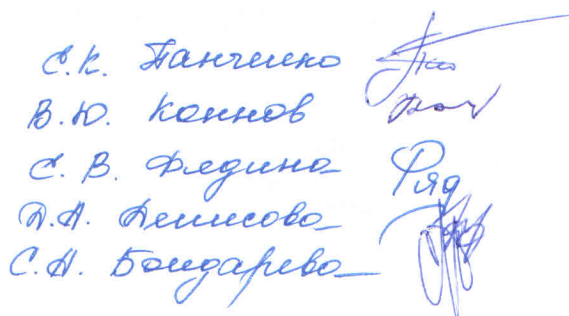 С.К. Панченко
В.Ю. Коннов
С.В. Фядина
Д.А. Денисова
С.Н. Бондарева